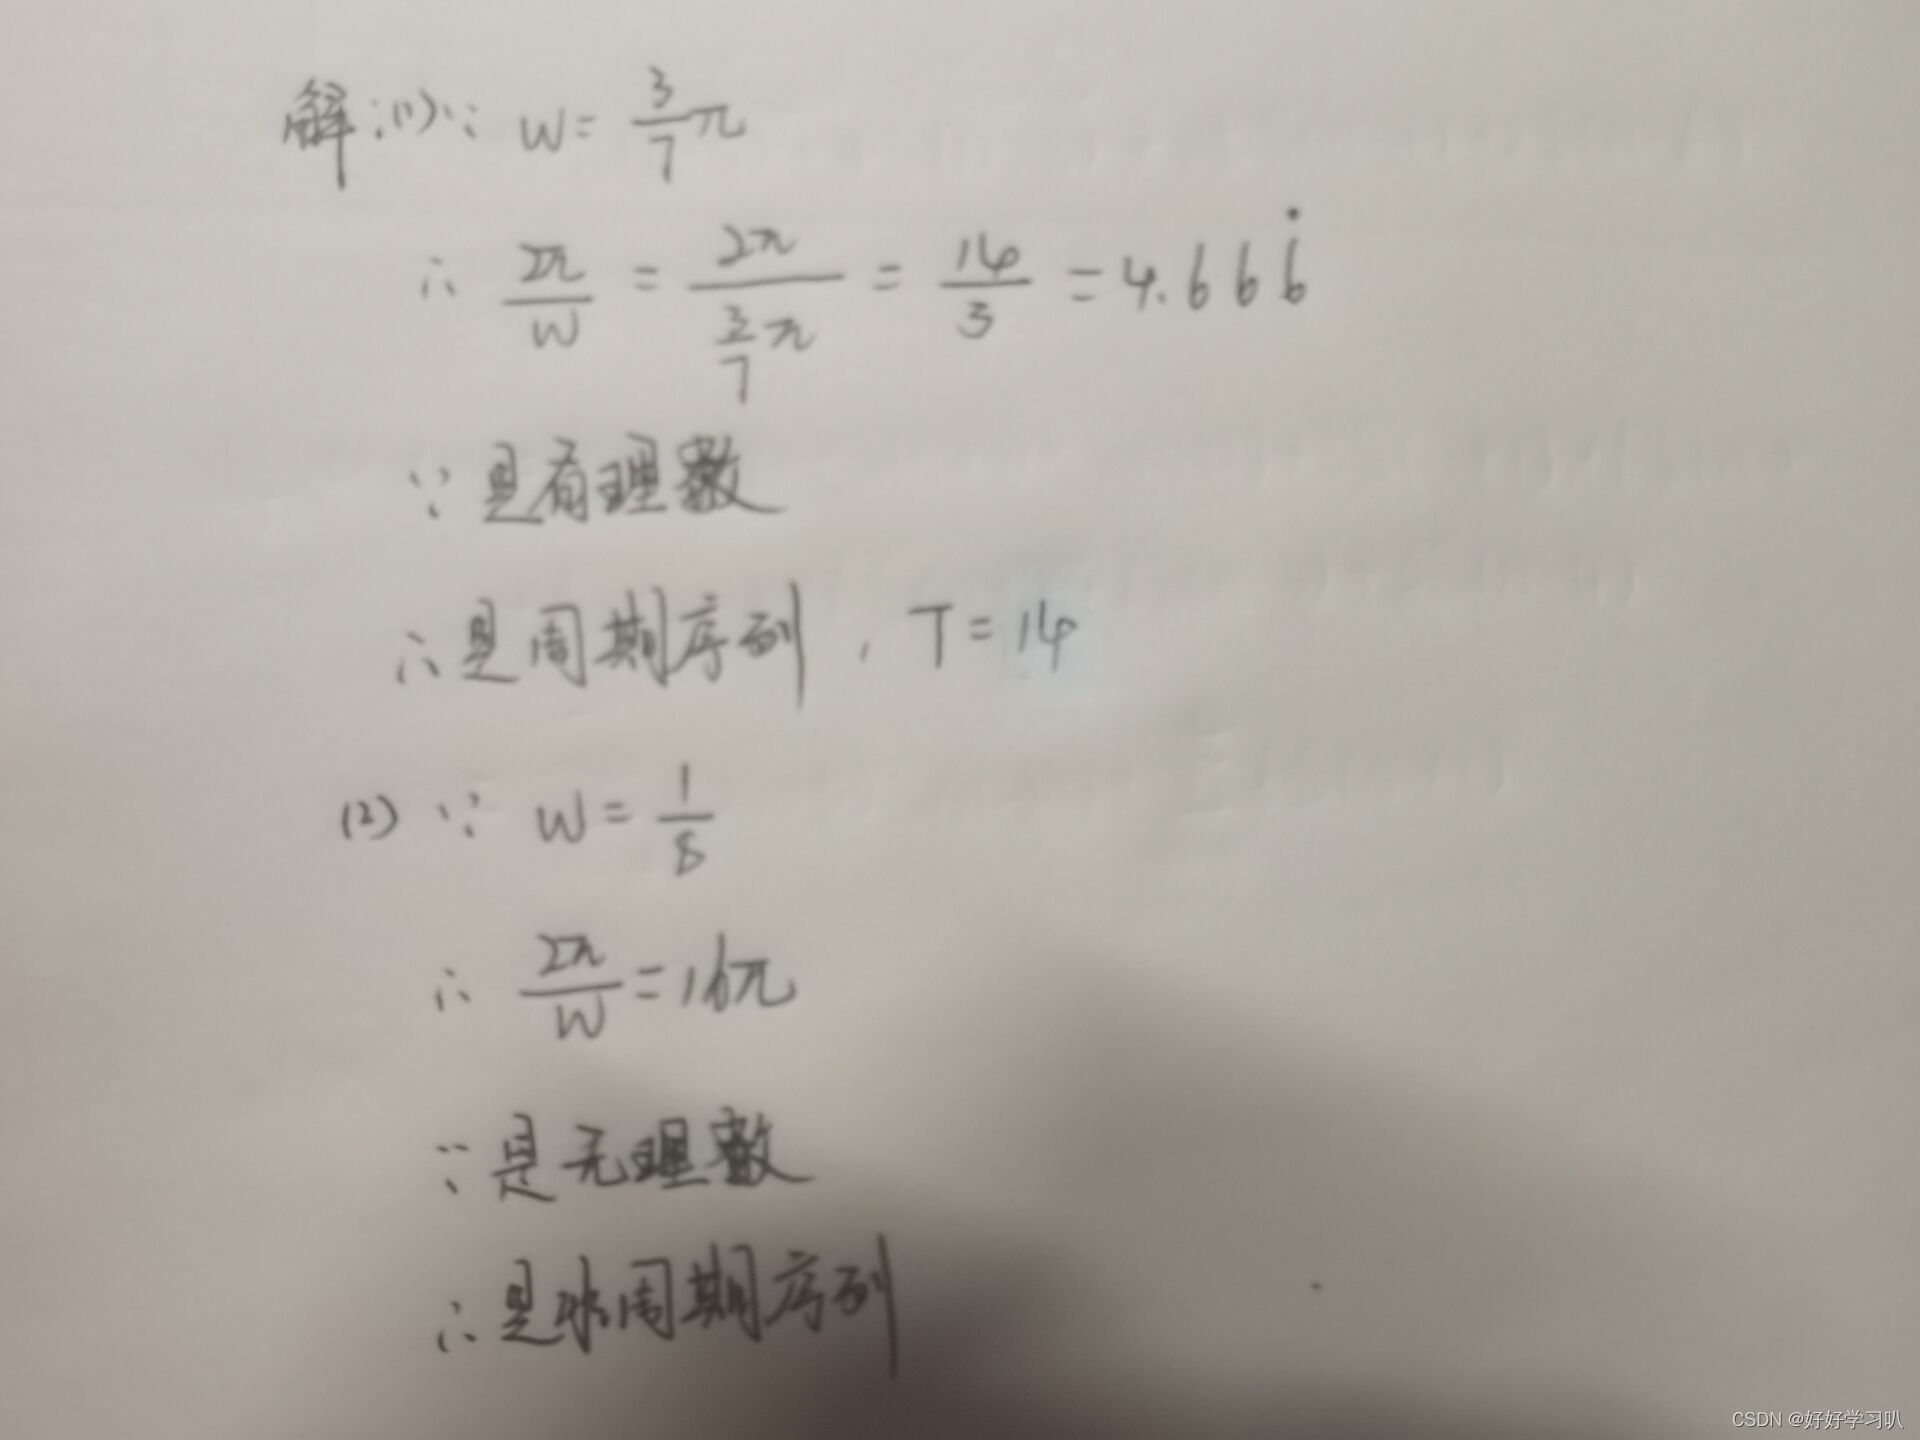 解：(1)∵ W = 3/7 π
∴ 2π/W = 2π/(3/7 π) = 14/3 = 4.666̇
∵是有理数
∴是周期序列，T=14
(2) ∵ W = 1/8
∴ 2π/W = 16π
∵是无理数
∴是非周期序列
CSDN @好好学习叭